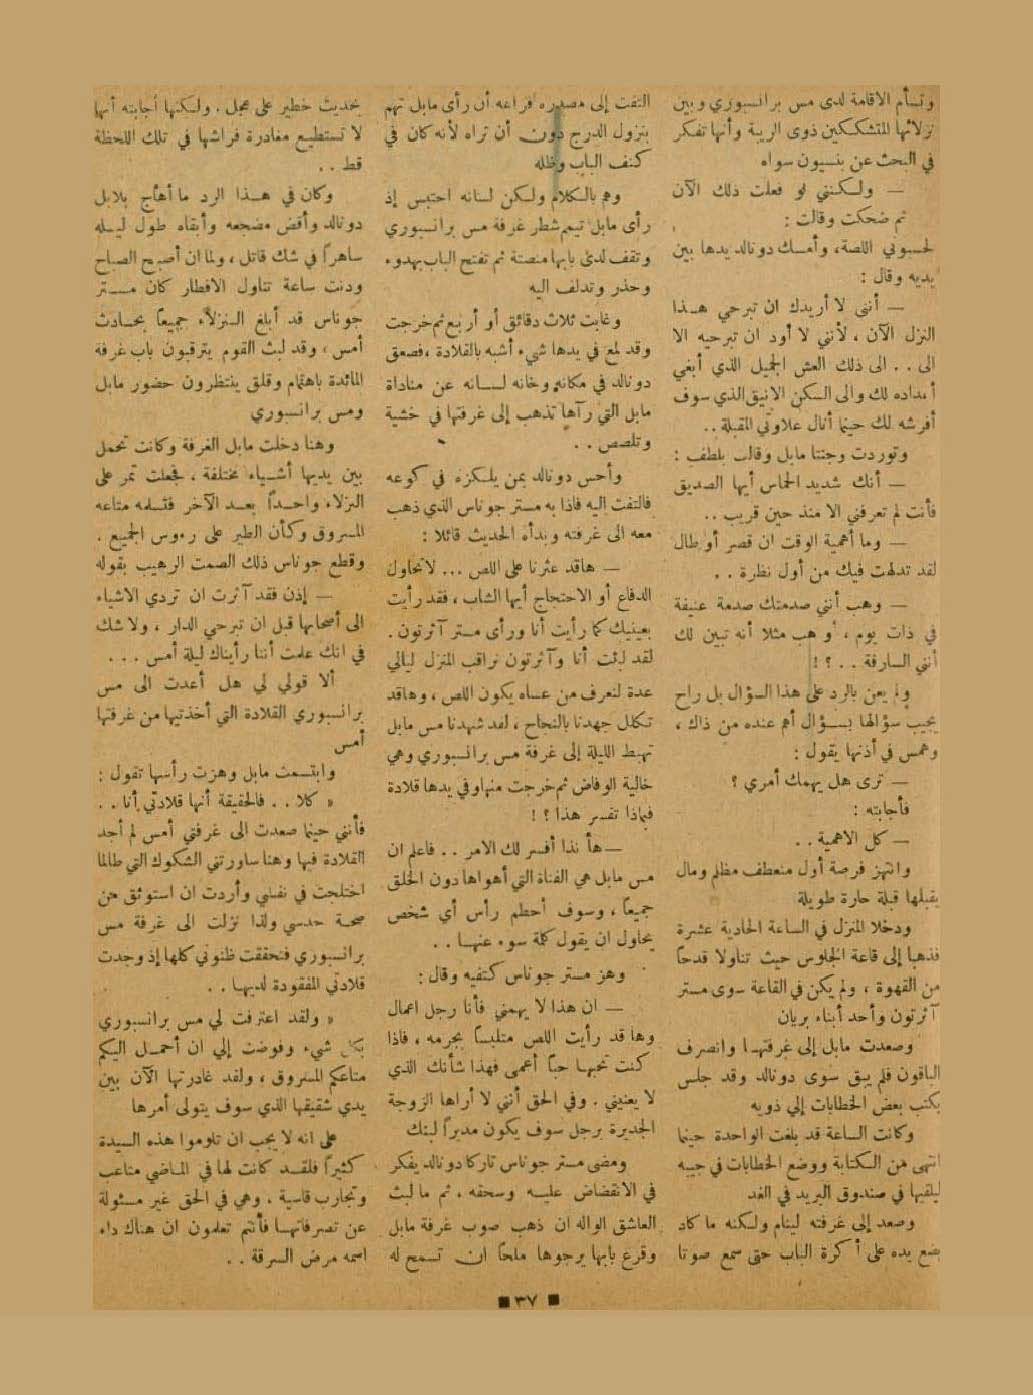 وتسأم الاقامة لدى مس برانسبوري وبين
نزلائها المتشككين ذوى الريبة وأنها تفكر
في البحث عن بنسيون سواه
— ولكنني لو فعلت ذلك الآن
ثم ضحكت وقالت :
لحسبوني اللصة، وأمسك دونالد يدها بين
يديه وقال :
— أنني لا أريدك ان تبرحي هذا
النزل الآن ، لأنني لا أود ان تبرحيه الا
الى . . الى ذلك العش الجميل الذي أبغي
أعداده لك والى السكن الانيق الذي سوف
أفرشه لك حينما أنال علاوتي المقبلة . .
وتوردت وجنتا مابل وقالت بلطف :
— أنك شديد الحماس أيها الصديق
فأنت لم تعرفني الا منذ حين قريب . .
— وما أهمية الوقت ان قصر أو طال
لقد تدلهت فيك من أول نظرة . .
— وهب أنني صدمتك صدمة عنيفة
في ذات يوم ، وهب مثلا أنه تبين لك
أنني السارقة . . ؟ !
ولم يعن بالرد على هذا السؤال بل راح
يجيب سؤالها بسؤال أهم عنده من ذاك ،
وهمس في أذنها يقول :
— ترى هل يهمك أمري ؟
فأجابته :
— كل الاهمية . .
وانتهز فرصة أول منعطف مظلم ومال
يقبلها قبلة حارة طويلة
ودخلا المنزل في الساعة الحادية عشرة
فذهبا إلى قاعة الجلوس حيث تناولا قدحاً
من القهوة ، ولم يكن في القاعة سوى مستر
آثرتون وأحد أبناء بريان
وصعدت مابل إلى غرفتها وانصرف
الباقون فلم يبق سوى دونالد وقد جلس
يكتب بعض الخطابات إلي ذويه
وكانت الساعة قد بلغت الواحدة حينما
انتهى من الكتابة ووضع الخطابات في جيبه
ليلقيها في صندوق البريد في الغد
وصعد إلى غرفته لينام ولكنه ما كاد
يضع يده على أكرة الباب حتى سمع صوتا
التفت إلى مصدره فراعه أن رأى مابل تهم
بنزول الدرج دون أن تراه لأنه كان في
كنف الباب وظله
وهم بالكلام ولكن لسانه احتبس إذ
رأى مابل تيمم شطر غرفة مس برانسبوري
وتقف لدى بابها منصتة ثم تفتح الباب بهدوء
وحذر وتدلف اليه
وغابت ثلاث دقائق أو أربع ثم خرجت
وقد لمع في يدها شيء أشبه بالقلادة ، فصعق
دونالد في مكانه وخانه لسانه عن مناداة
مابل التي رآها تذهب إلى غرفتها في خشية
وتلصص . .
وأحس دونالد بمن يلكزه في كوعه
فالتفت اليه فاذا به مستر جوناس الذي ذهب
معه الى غرفته وبدأه الحديث قائلا :
— هاقد عثرنا على اللص ... لا تحاول
الدفاع أو الاحتجاج أيها الشاب ، فقد رأيت
بعينيك كما رأيت أنا ورأى مستر آثرتون .
لقد لبثت أنا وآثرتون نراقب المنزل ليالي
عدة لنعرف من عساه يكون اللص ، وهاقد
تكلل جهدنا بالنجاح ، لقد شهدنا مس مابل
تهبط الليلة إلى غرفة مس برانسبوري وهي
خالية الوفاض ثم خرجت منها وفي يدها قلادة
فبماذا تفسر هذا ؟ !
— هأ نذا أفسر لك الامر . . فاعلم ان
مس مابل هي الفتاة التي أهواها دون الخلق
جميعاً ، وسوف أحطم رأس أي شخص
يحاول ان يقول كلمة سوء عنها . .
وهز مستر جوناس كتفيه وقال :
— ان هذا لا يهمني فأنا رجل اعمال
وها قد رأيت اللص متلبساً بجرمه ، فاذا
كنت تحبها حباً أعمى فهذا شأنك الذي
لا يعنيني . وفي الحق أنني لا أراها الزوجة
الجديرة برجل سوف يكون مديراً لبنك
ومضى مستر جوناس تاركا دونالد يفكر
في الانقضاض عليه وسحقه ، ثم ما لبث
العاشق الواله ان ذهب صوب غرفة مابل
وقرع بابها يرجوها ملحاً ان تسمح له
بحديث خطير على عجل . ولكنها أجابته أنها
لا تستطيع مغادرة فراشها في تلك اللحظة
قط . .
وكان في هذا الرد ما أهاج بلابل
دونالد وأقض مضجعه وأبقاه طول ليله
ساهراً في شك قاتل ، ولما ان أصبح الصباح
ودنت ساعة تناول الافطار كان مستر
جوناس قد أبلغ النزلاء جميعاً بحادث
أمس ، وقد لبث القوم يترقبون باب غرفة
المائدة باهتمام وقلق ينتظرون حضور مابل
ومس برانسبوري
وهنا دخلت مابل الغرفة وكانت تحمل
بين يديها أشياء مختلفة ، فجعلت تمر على
النزلاء واحداً بعد الآخر فتسلمه متاعه
المسروق وكأن الطير على رءوس الجميع .
وقطع جوناس ذلك الصمت الرهيب بقوله
— إذن فقد آثرت ان تردي الاشياء
الى أصحابها قبل ان تبرحي الدار ، ولا شك
في انك علمت أننا رأيناك ليلة أمس . . .
ألا قولي لي هل أعدت الى مس
برانسبوري القلادة التي أخذتيها من غرفتها
أمس
وابتسمت مابل وهزت رأسها تقول :
« كلا . . فالحقيقة أنها قلادتي أنا . .
فأنني حينما صعدت الى غرفتي أمس لم أجد
القلادة فيها وهنا ساورتني الشكوك التي طالما
اختلجت في نفسي وأردت ان استوثق من
صحة حدسي ولذا نزلت الى غرفة مس
برانسبوري فتحققت ظنوني كلها إذ وجدت
قلادتي المفقودة لديها . .
« ولقد اعترفت لي مس برانسبوري
بكل شيء وفوضت إلي ان أحمل اليكم
متاعكم المسروق ، ولقد غادرتها الآن بين
يدي شقيقها الذي سوف يتولى أمرها
على انه لا يجب ان تلوموا هذه السيدة
كثيراً فلقد كانت لها في الماضي متاعب
وتجارب قاسية ، وهي في الحق غير مسئولة
عن تصرفاتها فأنتم تعلمون ان هناك داء
اسمه مرض السرقة . .
■ ٣٧ ■